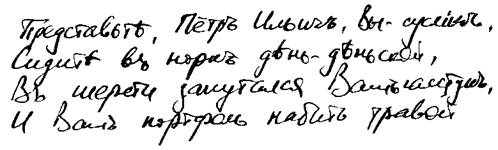 Представьтѣ, Пётръ Ильичъ, Вы - сусликъ,
Сидитѣ въ норкѣ дѣнь-дѣньской,
Въ шерсти запутался Вашъ галстукъ,
И Вашъ портфель набитъ травой